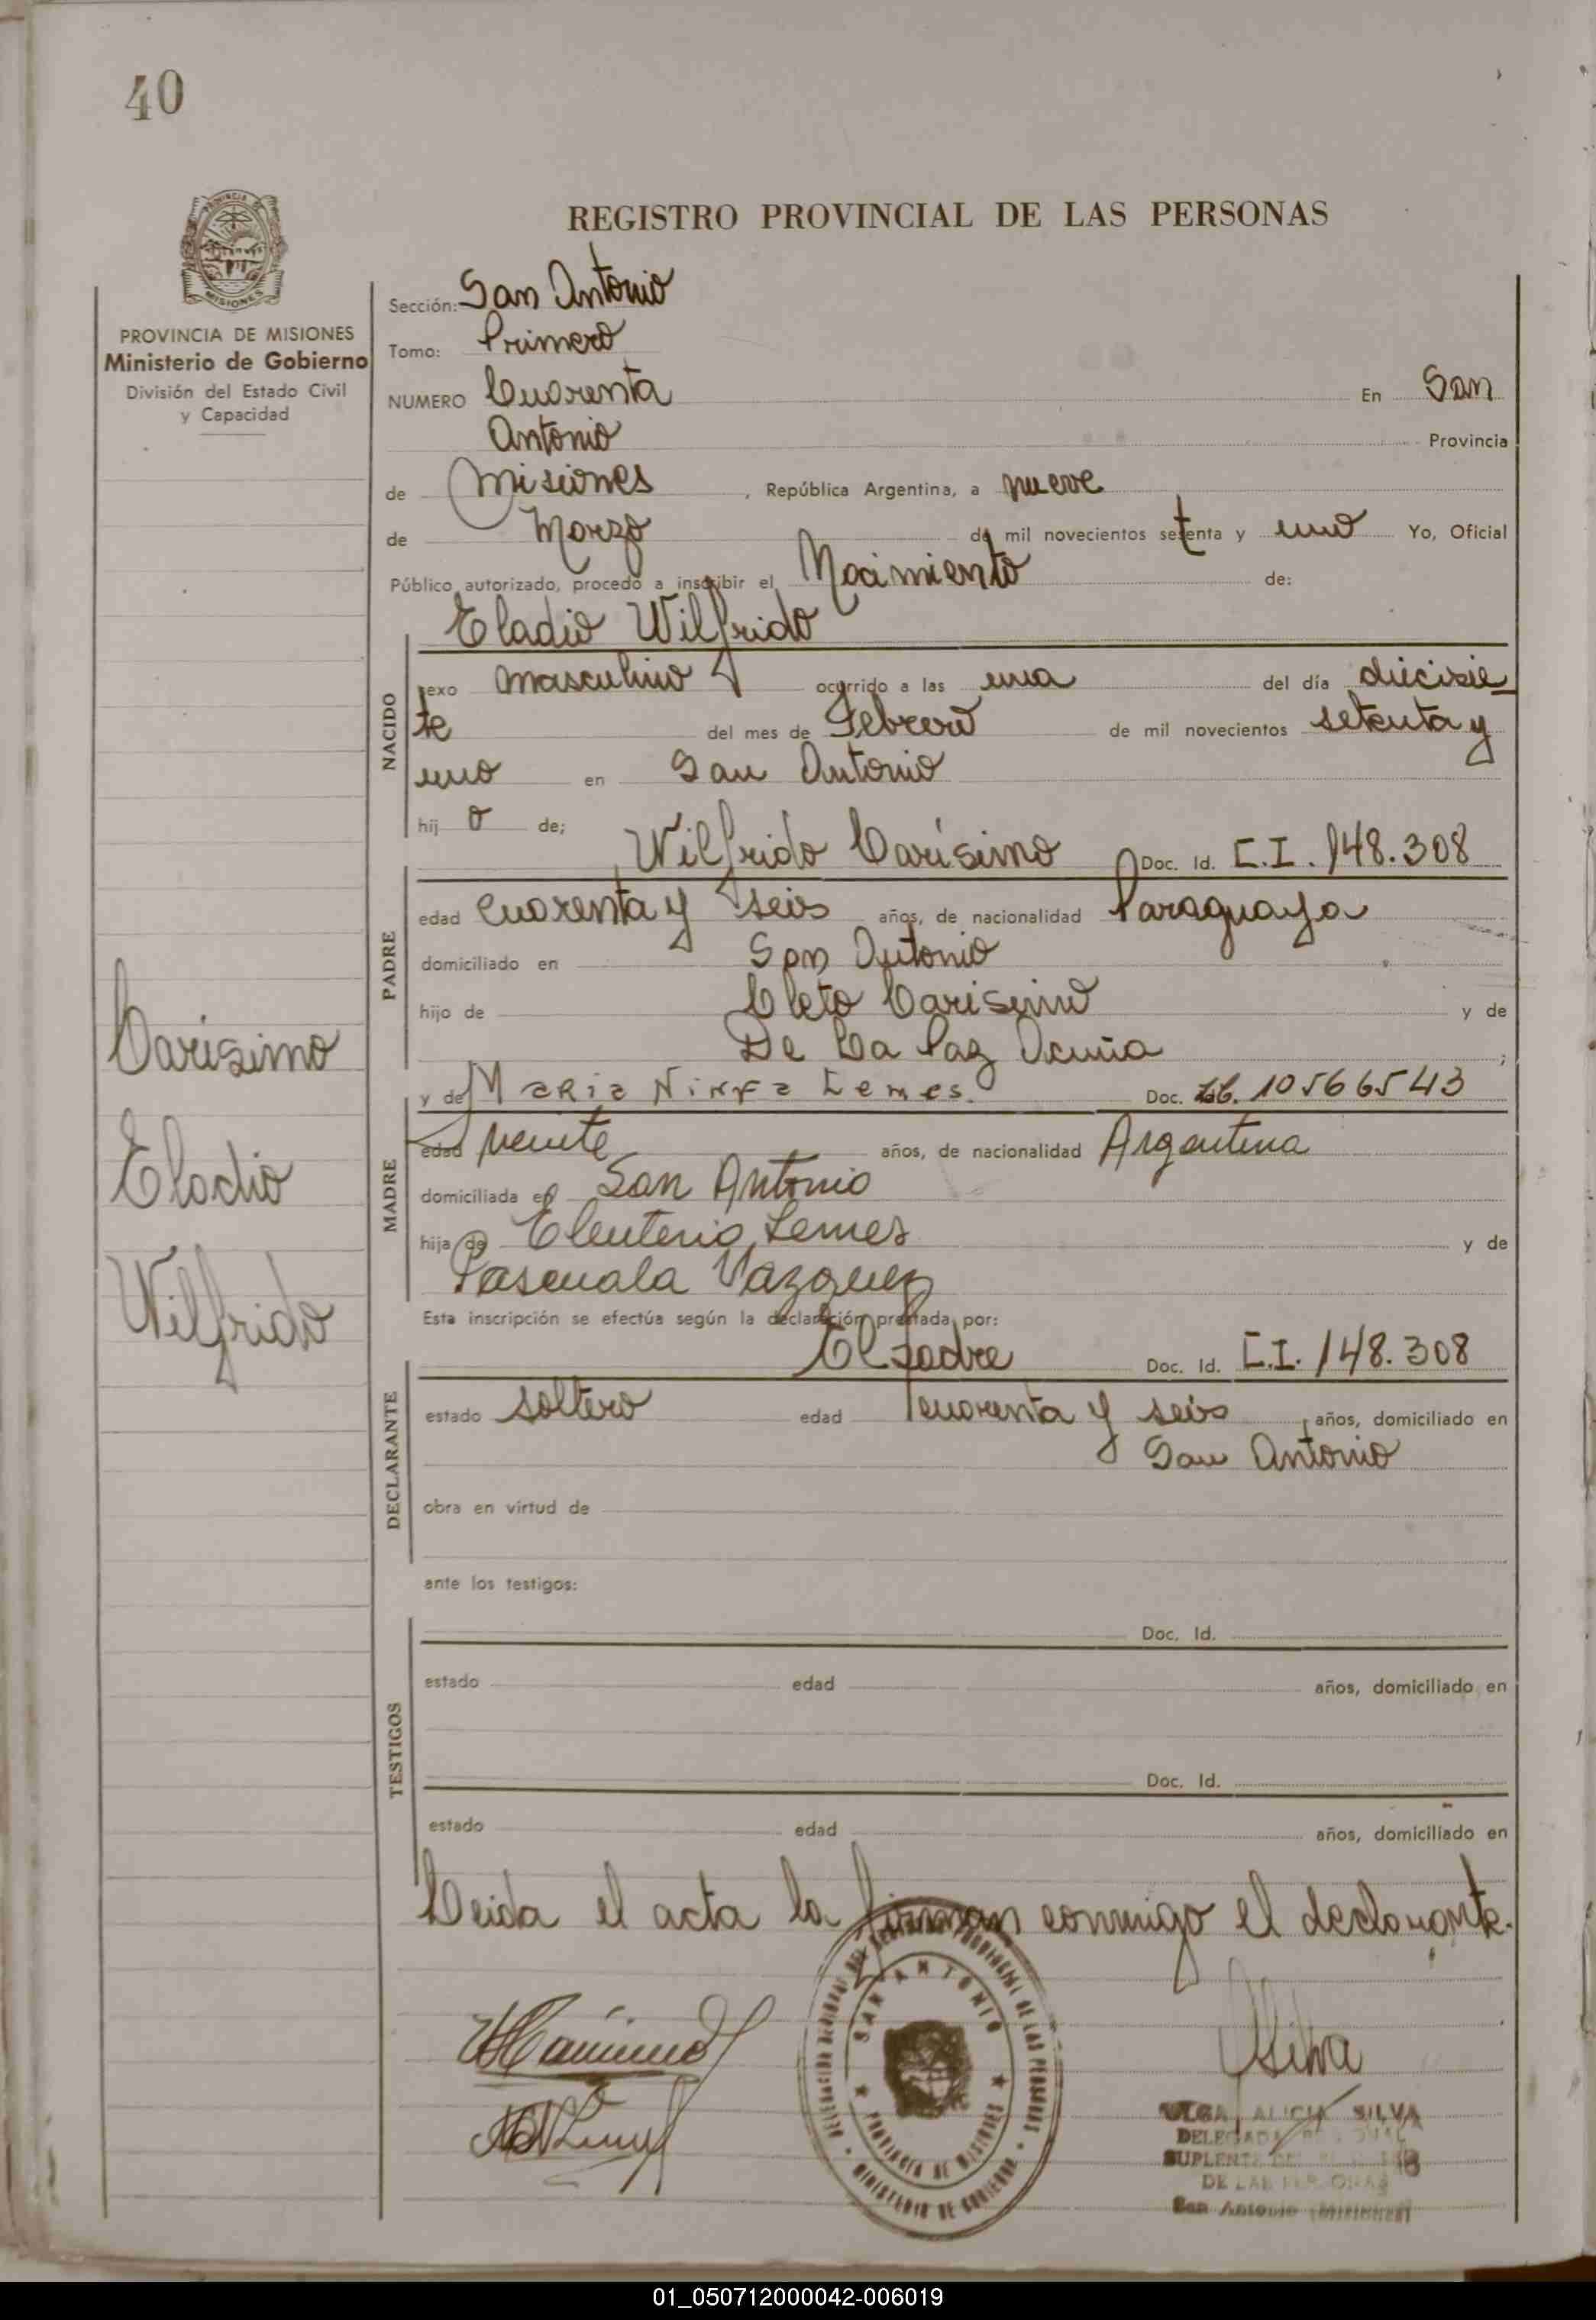 40
PROVINCIA DE
MISIONES
PROVINCIA DE MISIONES
Ministerio de Gobierno
División del Estado Civil
y Capacidad
Carisimo
Eladio
Wilfrido
REGISTRO PROVINCIAL DE LAS PERSONAS
Sección: San Antonio
Tomo: Primero
NUMERO Cuarenta En San
Antonio Provincia
de Misiones , República Argentina, a nueve
de Marzo de mil novecientos setenta y uno Yo, Oficial
Público autorizado, procedo a inscribir el Nacimiento de:
Eladio Wilfrido
NACIDO
sexo masculino ocurrido a las una del día diecisie-
te del mes de Febrero de mil novecientos setenta y
uno en San Antonio
hij o de;
Wilfrido Carisimo Doc. Id. C.I. 148.308
PADRE
edad cuarenta y seis años, de nacionalidad Paraguaya
domiciliado en San Antonio
hijo de Cleto Carisimo y de
De La Paz Acuña ;
y de Maria Ninfa Lemes. Doc. 10566543
MADRE
edad veinte años, de nacionalidad Argentina
domiciliada en San Antonio
hija de Eleuterio Lemes y de
Pascuala Vazquez
Esta inscripción se efectúa según la declaración prestada por:
El padre Doc. Id. C.I. 148.308
DECLARANTE
estado soltero edad cuarenta y seis años, domiciliado en
San Antonio
obra en virtud de
ante los testigos:
TESTIGOS
Doc. Id.
estado edad años, domiciliado en
Doc. Id.
estado edad años, domiciliado en
Leida el acta la firman conmigo el declarante.
SAN ANTONIO
PROVINCIA DE MISIONES
MINISTERIO DE GOBIERNO
Silva
OLGA ALICIA SILVA
DELEGADA
SUPLENTE
DE LAS PERSONAS
San Antonio (Misiones)
01_050712000042-006019